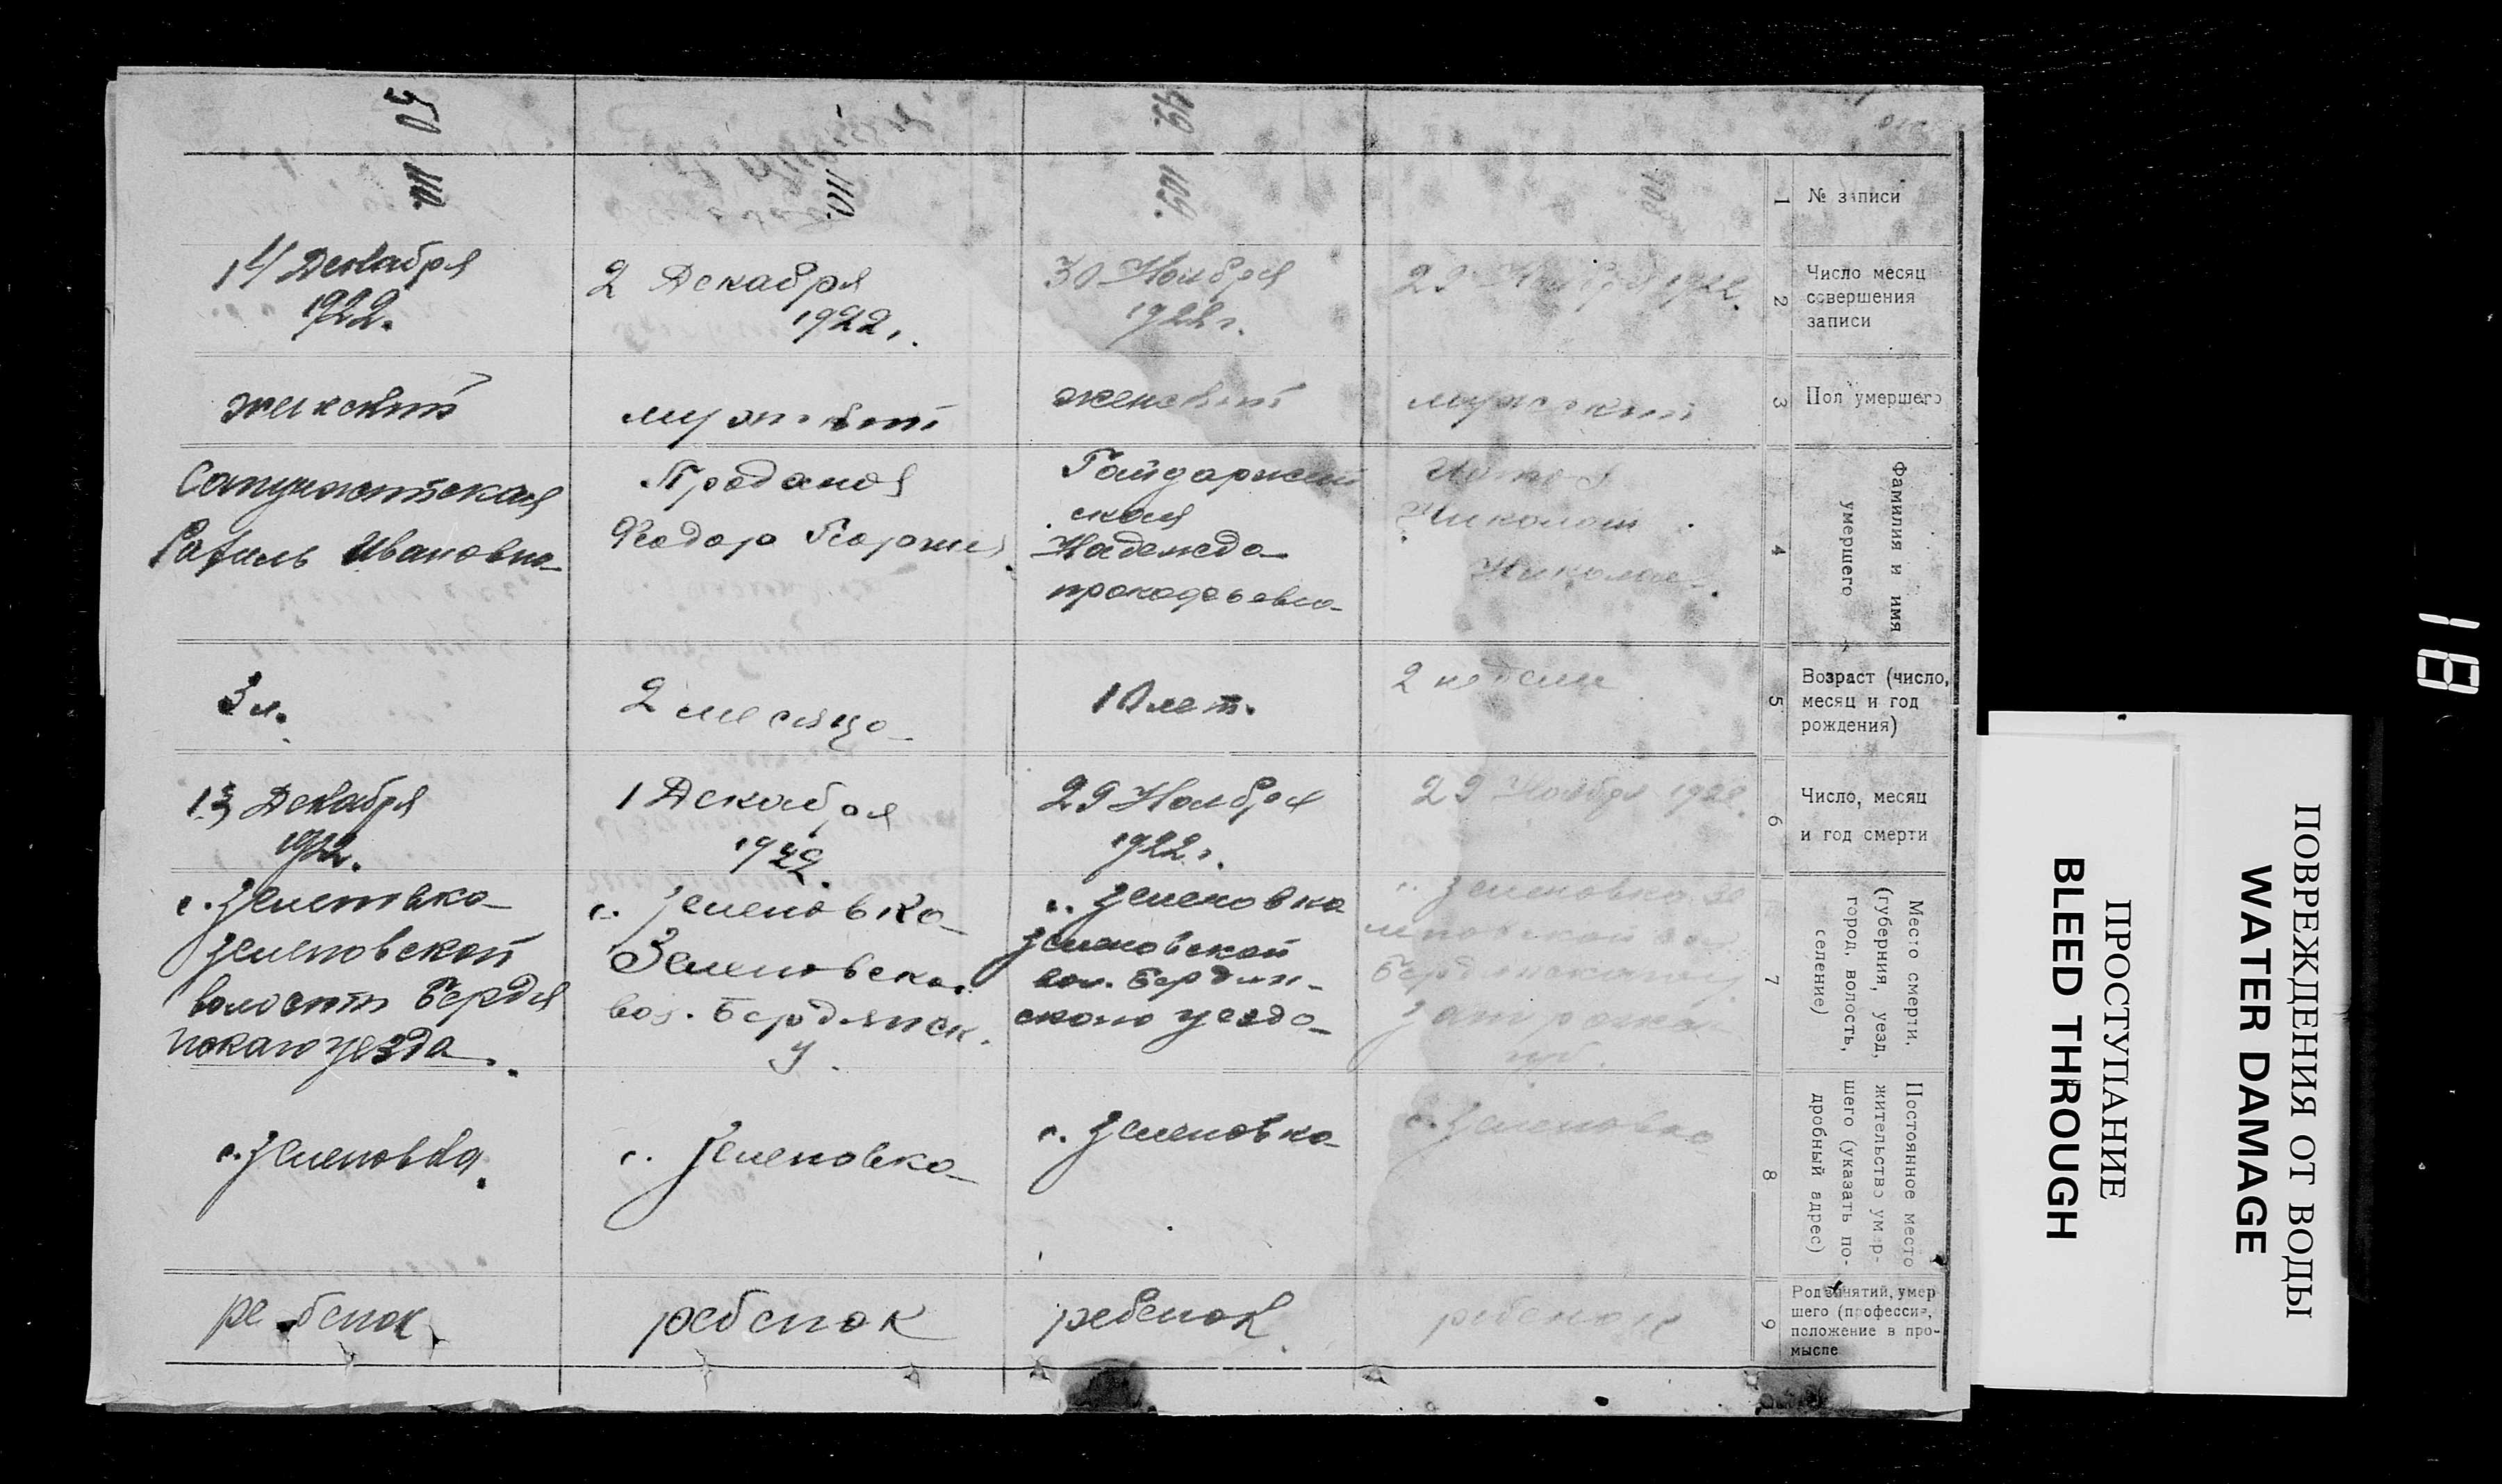 50
111.
14 Декабря
1922.
женский
Ивановна
3 л.
13 Декабря
1922.
с. Зеленовка
Зеленовской
волости Бердя
нскаго уезда.
с. Зеленовка.
ребенок
110.
2 Декабря
1922.
мужской
Феодор Георгиев
2 месяца
1 Декабря
1922.
с. Зеленовка
Зеленовской
вол. Бердянск.
у.
с. Зеленовка
ребенок
49.
109.
30 Ноября
1922 г.
женский
Гайдаржий
ская
Надежда
10 лет.
29 Ноября
1922 г.
с. Зеленовка
Зеленовской
вол. Бердян-
ского уезда
с. Зеленовка
ребенок
108
29 Ноября 1922.
мужский
Николай
Николаев.
2 недели
29 Ноября 1922.
с. Зеленовка Зе
леновской вол.
Бердянского у.
с. Зеленовка
ребенок
1
№ записи
2
Число месяц
совершения
записи
3
Пол умершего
4
Фамилия и имя
умершего
5
Возраст (число,
месяц и год
рождения)
6
Число, месяц
и год смерти
7
Место смерти.
(губерния, уезд,
город, волость,
селение)
8
Постоянное место
жительство умер-
шего (указать по-
дробный адрес)
9
Род занятий, умер
шего (профессия,
положение в про-
мысле
ПРОСТУПАНИЕ
BLEED THROUGH
ПОВРЕЖДЕНИЯ ОТ ВОДЫ
WATER DAMAGE
18